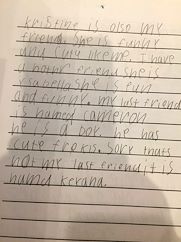 kristine is also my
friend. she is funny
and cuty like me. I have
a bothr friend she is
ysabella she is fun
and finny. my last friend
is named cameron
he is a boy. he has
cute frekis. Sory thats
not my last friend it is
named kerana.